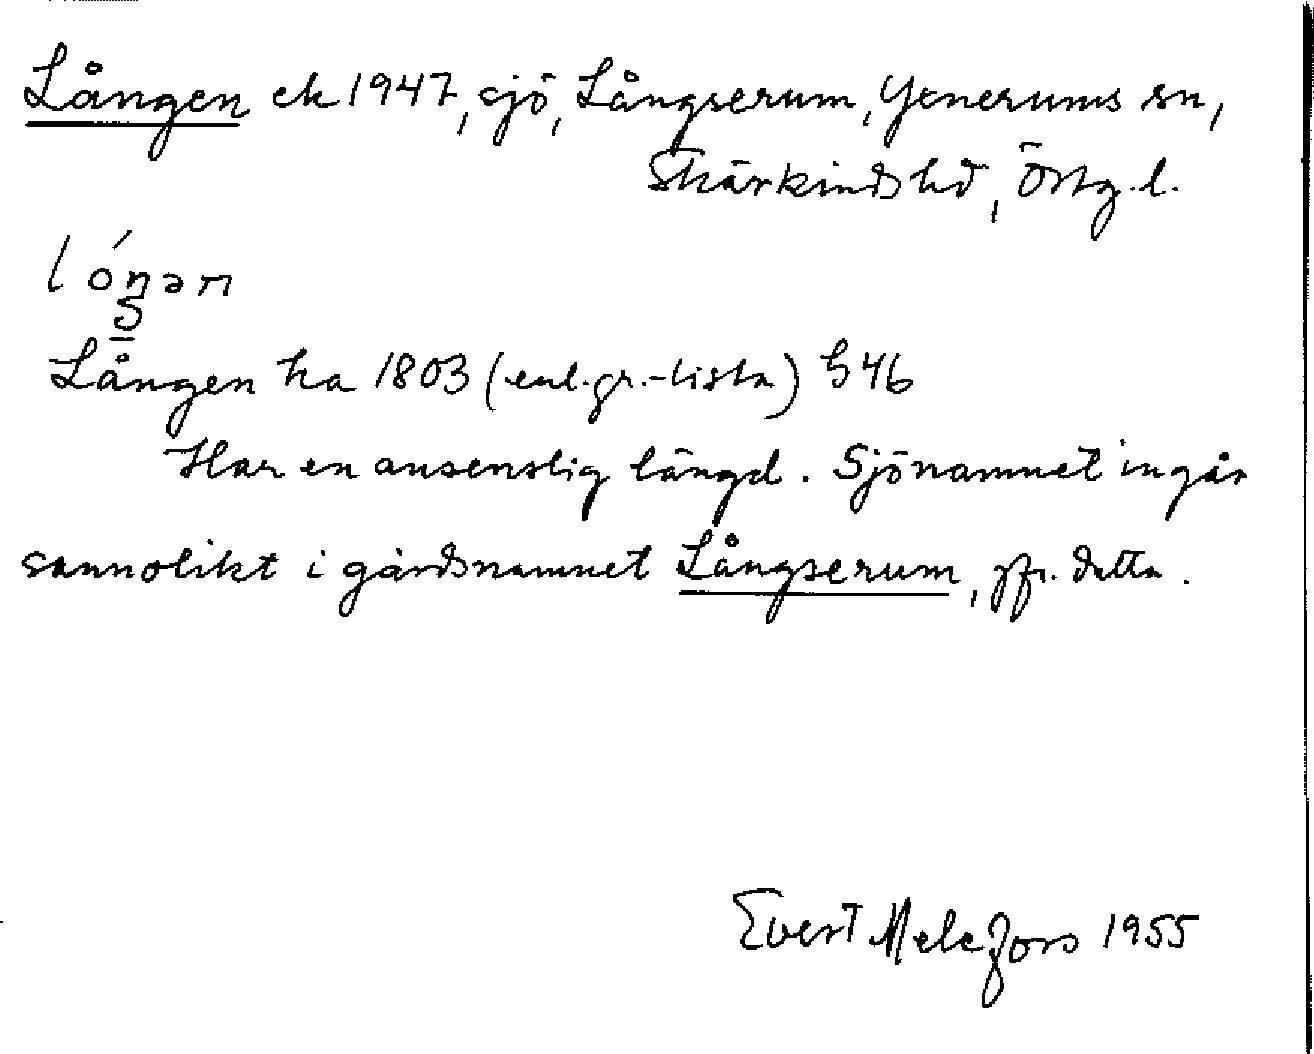 Lången ek 1947, sjö, Långserum, Yxnerums sn,
Skärkinds hd, Östg. l.
lóŋən
S
Lången ha 1803 (enl. gr.-lista) § 46
Har en ansenslig längd. Sjönamnet ingår
sannolikt i gårdsnamnet Långserum, jfr. detta.
Evert Melefors 1955